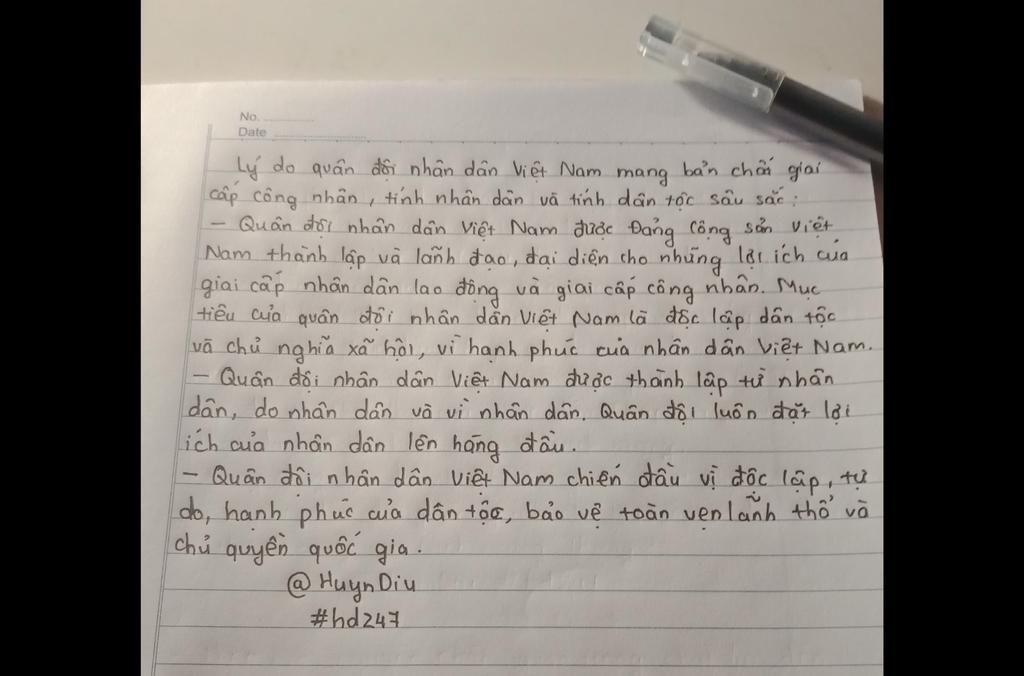 No. ............
Date ........................
Lý do quân đội nhân dân Việt Nam mang bản chất giai
cấp công nhân, tính nhân dân và tính dân tộc sâu sắc:
- Quân đội nhân dân Việt Nam được Đảng Cộng sản Việt
Nam thành lập và lãnh đạo, đại diện cho những lợi ích của
giai cấp nhân dân lao động và giai cấp công nhân. Mục
tiêu của quân đội nhân dân Việt Nam là độc lập dân tộc
và chủ nghĩa xã hội, vì hạnh phúc của nhân dân Việt Nam.
- Quân đội nhân dân Việt Nam được thành lập từ nhân
dân, do nhân dân và vì nhân dân. Quân đội luôn đặt lợi
ích của nhân dân lên hàng đầu.
- Quân đội nhân dân Việt Nam chiến đấu vì độc lập, tự
do, hạnh phúc của dân tộc, bảo vệ toàn vẹn lãnh thổ và
chủ quyền quốc gia.
@HuynDiu
#hd247